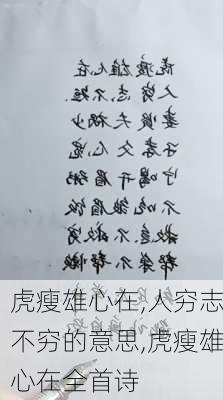 虎瘦雄心在
人穷志不短
妻贤夫祸少
子孝父心宽
宁喝开眉粥
不眉饭
急不救穷
帮不帮懒
虎瘦雄心在,人穷志
不穷的意思,虎瘦雄
心在全首诗